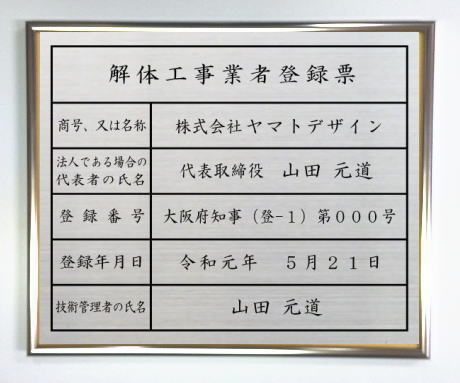 解体工事業者登録票
商号、又は名称 株式会社ヤマトデザイン
法人である場合の
代表者の氏名 代表取締役 山田 元道
登録番号 大阪府知事（登-1）第000号
登録年月日 令和元年 5月21日
技術管理者の氏名 山田 元道